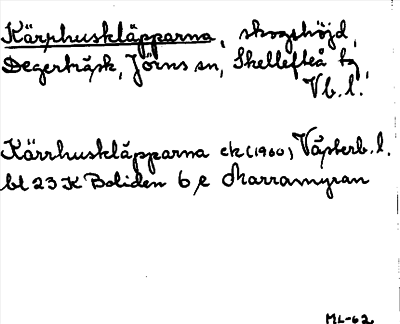 Kärrhuskläpparna, skogshöjd,
Degerträsk, Jörns sn, Skellefteå tg,
Vb.l.
Kärrhuskläpparna ek (1960) Västerb.l.
bl 23 K Boliden 6 e Norramyran
ML-62